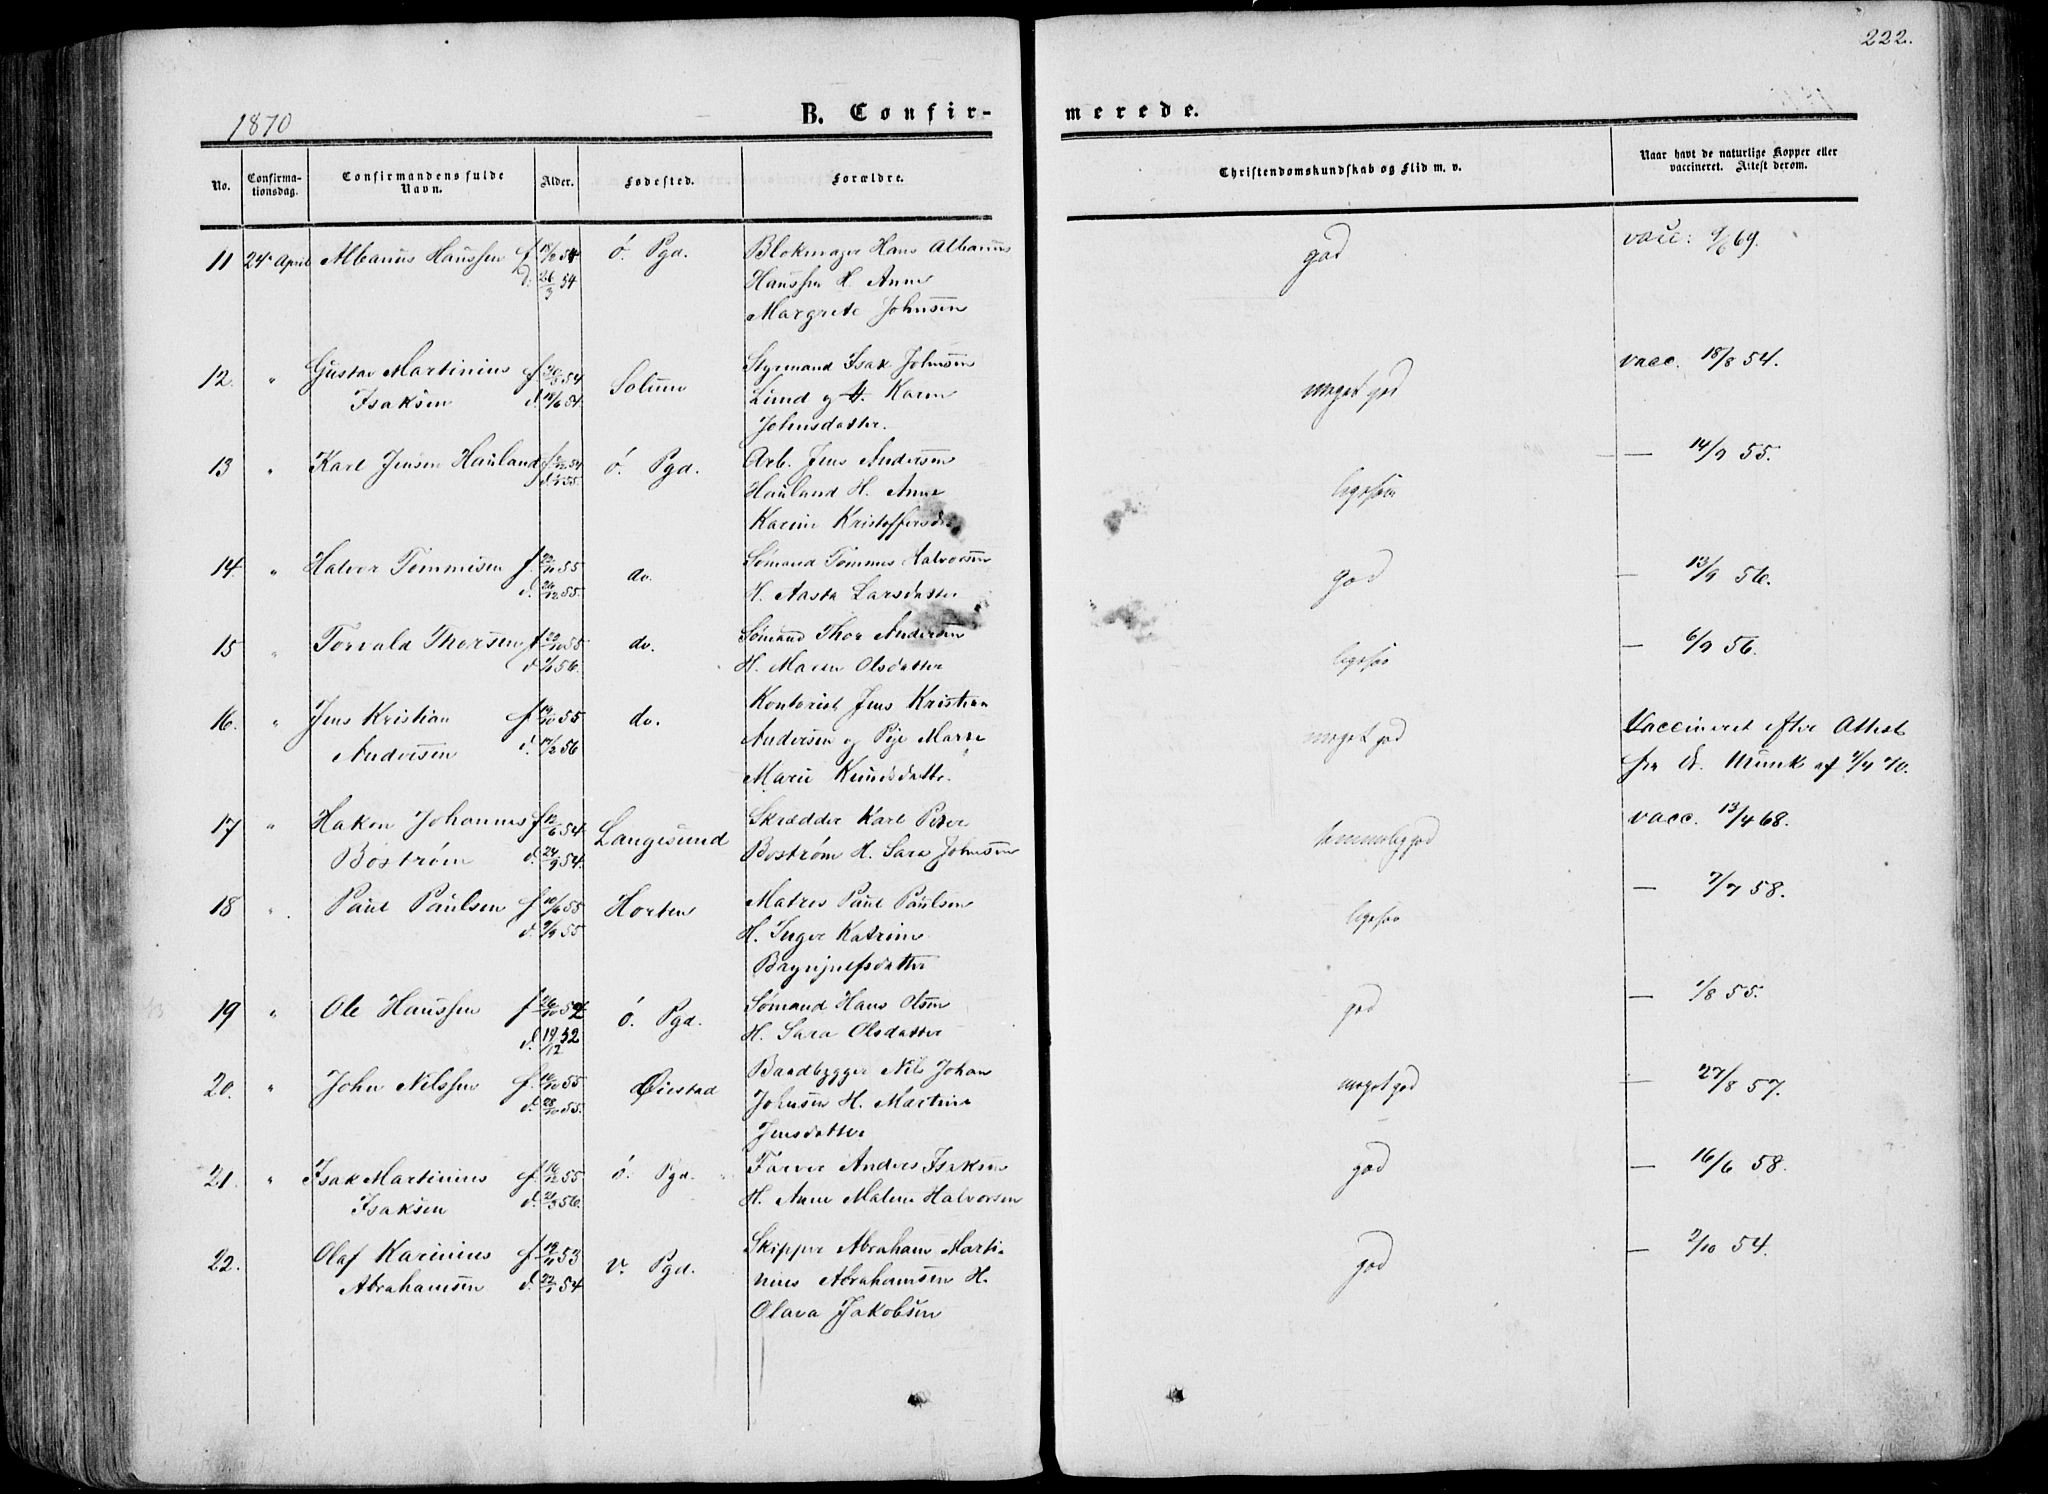 222.
1870
B. Confirmerede.
No.
Confirmationsdag.
Confirmandens fulde Navn.
Alder.
Fødested.
Forældre.
Christendomskundskab og Flid m. v.
Naar havt de naturlige Kopper eller vaccineret. Attest derom.
11 24 April Albanus Hanssen f. 54 ö. Pgd. Blokmager Hans Albanus god vacc: 69.
d. 26/3 54 Hanssen H. Anne
Margrete Johnsen
12. " Gustav Martinius f. 54 Solum Styrmand Isak Johnsen meget god vacc. 18/8 54.
Isaksen d. 18/6 54. Lund og H. Karen
Johnsdatter.
13 " Karl Jensen Hauland f. 54 ö. Pgd. Arb. Jens Andersen ligesaa — 14/9 55.
d. 55. Hauland H. Anne
Karine Kristoffersd
14. " Halvor Tommesen f. 55 do. Sømand Tommes Halvorsen god — 13/9 56.
d. 26/12 55. H. Aasta Larsdatter
15 " Torvald Thorsen f. 55 do. Sømand Thor Andersen ligesaa — 6/9 56.
d. 56. H. Maren Olsdatter
16. " Jens Kristian f. 19/10 55 do. Kontorist Jens Kristian meget god Vaccineret efter Attest
Andersen d. 17/2 56 Andersen og Pige Maren fra Dr. Munk af 1/4 70.
Marie Knudsdatter.
17 " Hakon Johannes f. 12/6 54. Langesund Skrædder Karl Peter temmelig god vacc. 13/4 68.
Boström d. 24/9 54. Boström H. Sara Johnsen
18 " Paul Paulsen f. 10/6 55 Horten Matros Paul Paulsen ligesaa — 7/7 58.
d. 9/9 55 H. Inger Katrine
Brynjulfsdatter
19 " Ole Hanssen f. 26/10 52 ö. Pgd. Sømand Hans Olsen god — 1/8 55.
d. 19/12 52 H. Sara Olsdatter
20. " John Nilssen f. 55 Øiestad Baadbygger Nils Johan meget god — 27/8 57.
d. 28/10 55. Johnsen H. Martine
Jensdatter
21. " Isak Martinius f. 55 ö. Pgd. Farver Anders Isaksen god — 16/6 58.
Isaksen d. 21/3 56. H. Anne Malene Halvorsen
22. " Olaf Karinius f. 19/11 53 v. Pgd. Skipper Abraham Marti- god — 2/10 54.
Abrahamsen d. 22/1 54 nius Abrahamsen H.
Olava Jakobsen